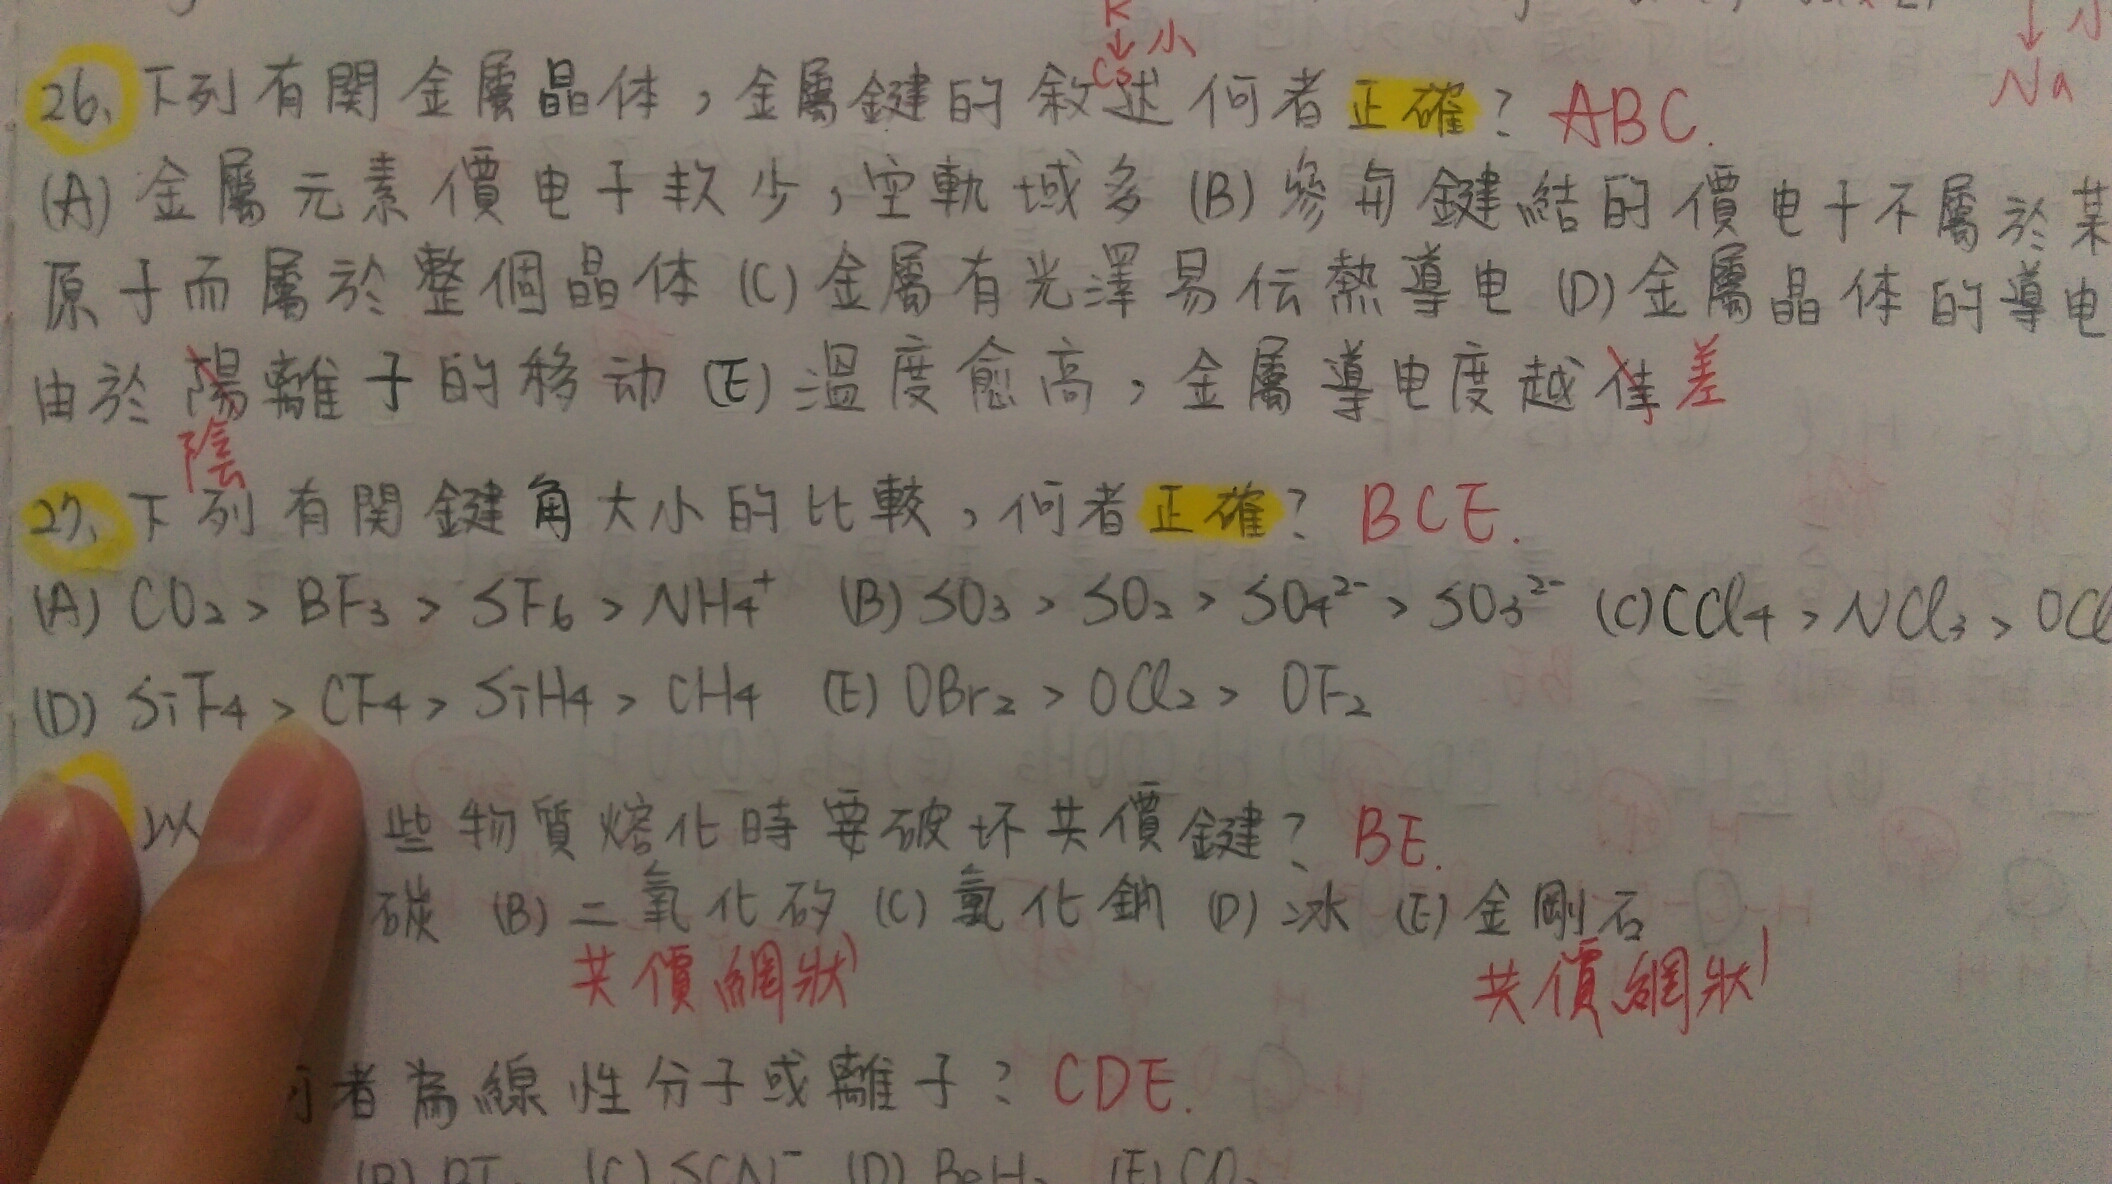 K
↓ 小
Cs
↓ 小
Na
26、下列有関金屬晶体，金屬鍵的敘述何者正確？ ABC.
(A) 金屬元素價电子較少，空軌域多 (B) 參与鍵結的價电子不屬於某
原子而屬於整個晶体 (C) 金屬有光澤易伝熱導电 (D) 金屬晶体的導电
由於陽離子的移动 (E) 溫度愈高，金屬導电度越佳 差
陰
27、下列有関鍵角大小的比較，何者正確？ BCE.
(A) CO₂ > BF₃ > SF₆ > NH₄⁺ (B) SO₃ > SO₂ > SO₄²⁻ > SO₃²⁻ (C) CCl₄ > NCl₃ > OCl
(D) SiF₄ > CF₄ > SiH₄ > CH₄ (E) OBr₂ > OCl₂ > OF₂
以 些物質熔化時要破坏共價鍵？ BE.
碳 (B) 二氧化矽 (C) 氯化鈉 (D) 冰 (E) 金剛石
共價網狀 共價網狀
何者為線性分子或離子？ CDE.
(C) SCN⁻ (D) BeH₂ (E) CO₂